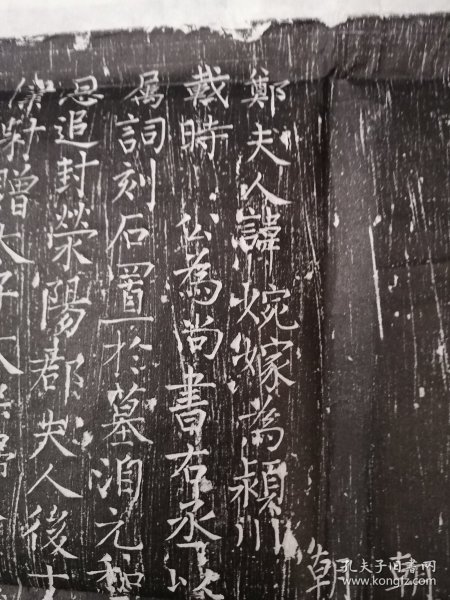 朝
鄭夫人諱婉嫁為潁川
載時公為尚書右丞以
属詞刻石置於墓洎元和
恩追封滎陽郡夫人後十
射贈太子太
孔夫子旧书网
www.kongfz.com